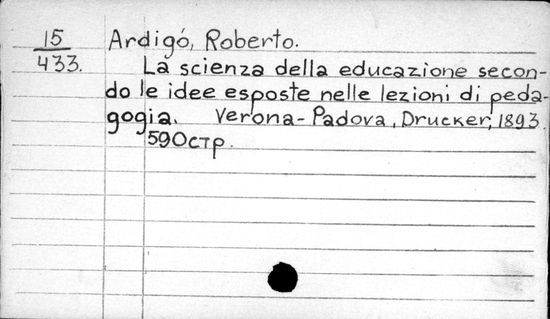 15 Ardigó, Roberto.
433. La scienza della educazione secon-
do le idee esposte nelle lezioni di peda-
gogia. Verona-Padova, Drucker, 1893.
590стр.